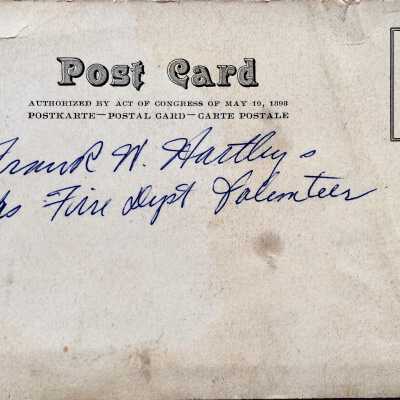 Post Card
AUTHORIZED BY ACT OF CONGRESS OF MAY 19, 1898
POSTKARTE—POSTAL CARD—CARTE POSTALE
Frank W. Hartley s
Fire Dept Volunteer